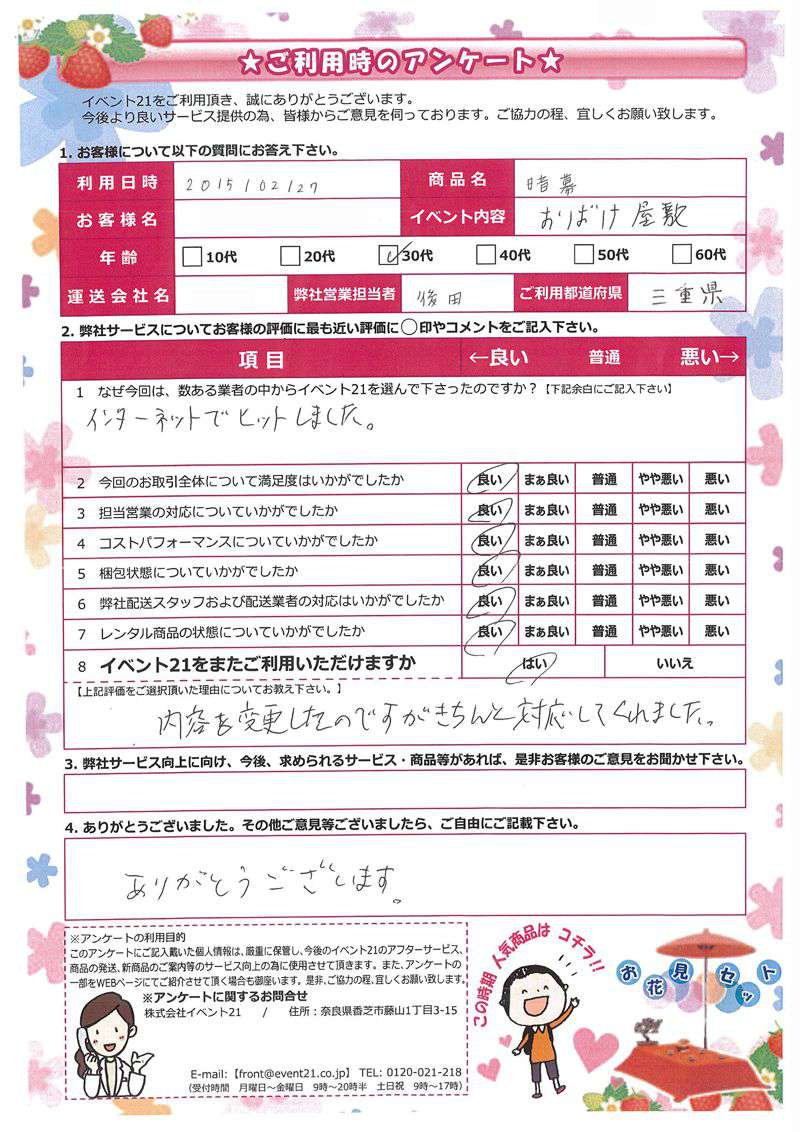 ★ご利用時のアンケート★
イベント21をご利用頂き、誠にありがとうございます。
今後より良いサービス提供の為、皆様からご意見を伺っております。ご協力の程、宜しくお願い致します。
1. お客様について以下の質問にお答え下さい。
利用日時 2015102127 商品名 暗幕
お客様名 イベント内容 おりばけ屋敷
年齢 10代 20代 30代 40代 50代 60代
運送会社名 弊社営業担当者 後田 ご利用都道府県 三重県
2. 弊社サービスについてお客様の評価に最も近い評価に○印やコメントをご記入下さい。
項目 ←良い 普通 悪い→
1 なぜ今回は、数ある業者の中からイベント21を選んで下さったのですか？【下記余白にご記入下さい】
インターネットでヒットしました。
2 今回のお取引全体について満足度はいかがでしたか 良い まぁ良い 普通 やや悪い 悪い
3 担当営業の対応についていかがでしたか 良い まぁ良い 普通 やや悪い 悪い
4 コストパフォーマンスについていかがでしたか 良い まぁ良い 普通 やや悪い 悪い
5 梱包状態についていかがでしたか 良い まぁ良い 普通 やや悪い 悪い
6 弊社配送スタッフおよび配送業者の対応はいかがでしたか 良い まぁ良い 普通 やや悪い 悪い
7 レンタル商品の状態についていかがでしたか 良い まぁ良い 普通 やや悪い 悪い
8 イベント21をまたご利用いただけますか はい いいえ
【上記評価をご選択頂いた理由についてお教え下さい。】
内容を変更したのですがきちんと対応してくれました。
3. 弊社サービス向上に向け、今後、求められるサービス・商品等があれば、是非お客様のご意見をお聞かせ下さい。
4. ありがとうございました。その他ご意見等ございましたら、ご自由にご記載下さい。
ありがとうございます。
※アンケートの利用目的
このアンケートにご記入戴いた個人情報は、厳重に保管し、今後のイベント21のアフターサービス、
商品の発送、新商品のご案内等のサービス向上の為に使用させて頂きます。また、アンケートの
一部をWEBページにてご紹介させて頂く場合も御座います。是非、ご協力の程、宜しくお願い致します。
※アンケートに関するお問合せ
株式会社イベント21 / 住所：奈良県香芝市藤山1丁目3-15
E-mail:【front@event21.co.jp】 TEL: 0120-021-218
(受付時間 月曜日～金曜日 9時～20時半 土日祝 9時～17時)
この時期 人気商品は コチラ!!
お花見セット